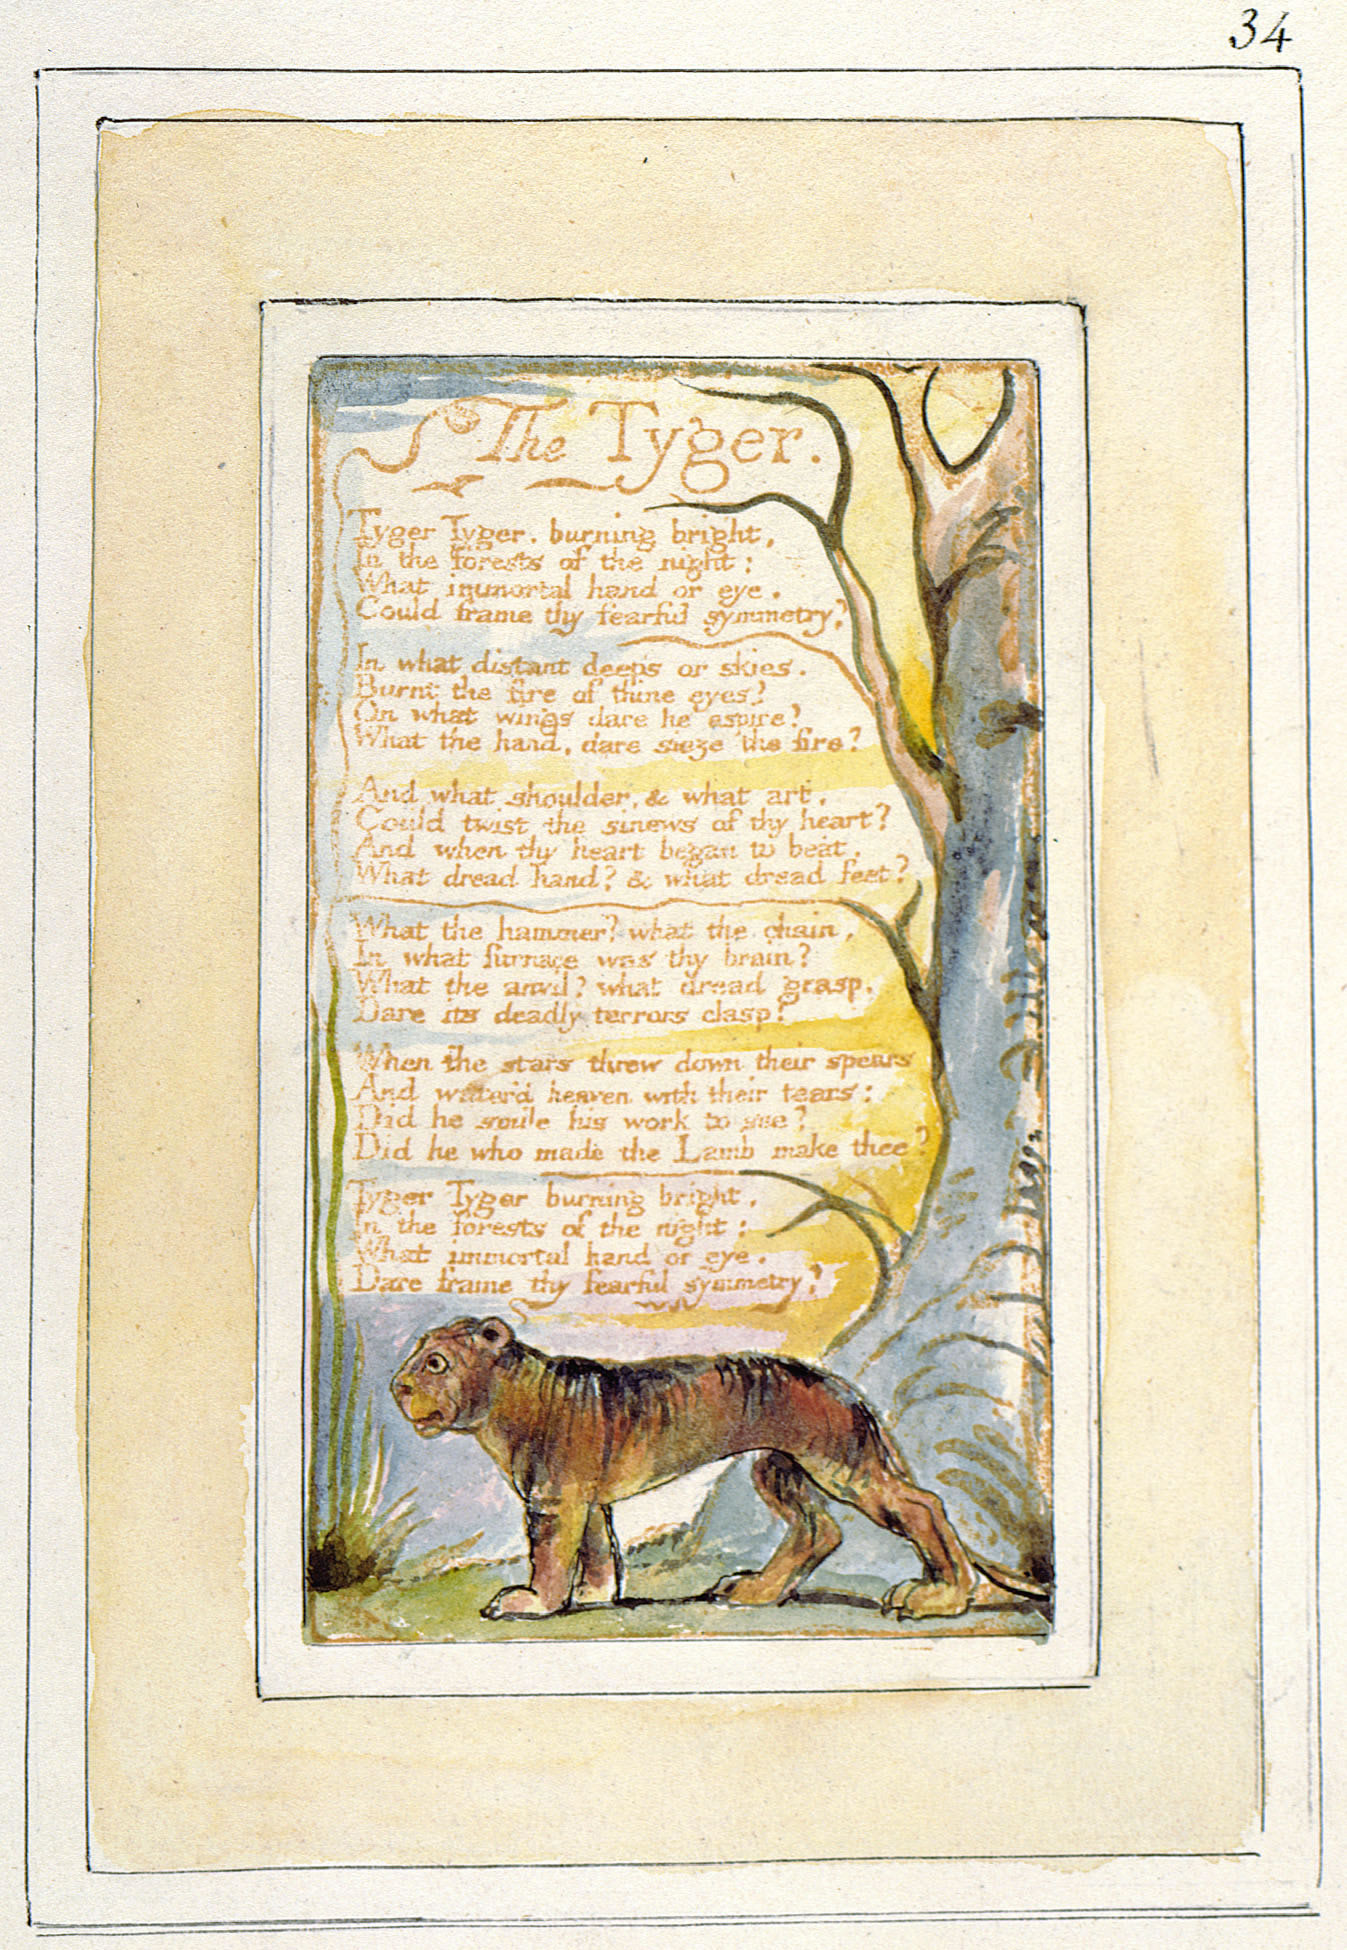 34
The Tyger.
Tyger Tyger. burning bright,
In the forests of the night:
What immortal hand or eye.
Could frame thy fearful symmetry?
In what distant deeps or skies.
Burnt the fire of thine eyes?
On what wings dare he aspire?
What the hand, dare sieze the fire?
And what shoulder, & what art,
Could twist the sinews of thy heart?
And when thy heart began to beat,
What dread hand? & what dread feet?
What the hammer? what the chain,
In what furnace was thy brain?
What the anvil? what dread grasp,
Dare its deadly terrors clasp?
When the stars threw down their spears
And water'd heaven with their tears:
Did he smile his work to see?
Did he who made the Lamb make thee?
Tyger Tyger burning bright,
In the forests of the night:
What immortal hand or eye,
Dare frame thy fearful symmetry?